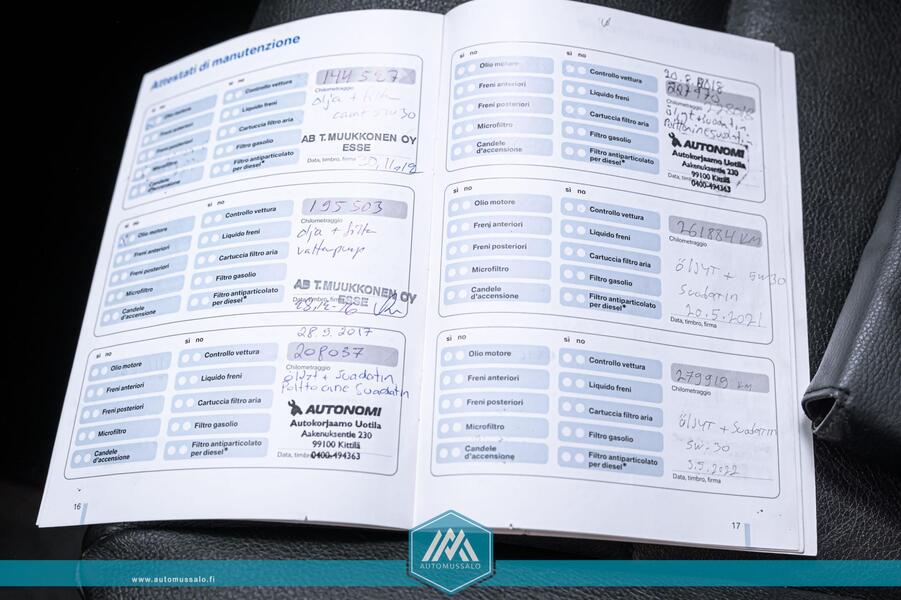 Attestati di manutenzione
si no
si no
Olio motore
Freni anteriori
Freni posteriori
Microfiltro
Candele
d'accensione
Controllo vettura
Liquido freni
Cartuccia filtro aria
Filtro gasolio
Filtro antiparticolato
per diesel*
144527
Chilometraggio
AB T.MUUKKONEN OY
ESSE
Data, timbro, firma
si no
si no
Olio motore
Freni anteriori
Freni posteriori
Microfiltro
Candele
d'accensione
Controllo vettura
Liquido freni
Cartuccia filtro aria
Filtro gasolio
Filtro antiparticolato
per diesel*
195503
Chilometraggio
olja + filter
vattenpump
AB T.MUUKKONEN OY
ESSE
Data, timbro, firma
si no
si no
Olio motore
Freni anteriori
Freni posteriori
Microfiltro
Candele
d'accensione
Controllo vettura
Liquido freni
Cartuccia filtro aria
Filtro gasolio
Filtro antiparticolato
per diesel*
28.9.2017
209037
Chilometraggio
öljyt + suodatin
Polttoaine suodatin
AUTONOMI
Autokorjaamo Uotila
Aakenuksentie 230
99100 Kittilä
0400-494363
Data, timbro, firma
16
si no
si no
Olio motore
Freni anteriori
Freni posteriori
Microfiltro
Candele
d'accensione
Controllo vettura
Liquido freni
Cartuccia filtro aria
Filtro gasolio
Filtro antiparticolato
per diesel*
Chilometraggio
öljyt + suodatin
AUTONOMI
Autokorjaamo Uotila
Aakenuksentie 230
99100 Kittilä
0400-494363
si no
si no
Olio motore
Freni anteriori
Freni posteriori
Microfiltro
Candele
d'accensione
Controllo vettura
Liquido freni
Cartuccia filtro aria
Filtro gasolio
Filtro antiparticolato
per diesel*
261884 KM
Chilometraggio
öljyt + 5w30
suodatin
20.5.2021
Data, timbro, firma
si no
si no
Olio motore
Freni anteriori
Freni posteriori
Microfiltro
Candele
d'accensione
Controllo vettura
Liquido freni
Cartuccia filtro aria
Filtro gasolio
Filtro antiparticolato
per diesel*
279919 KM
Chilometraggio
öljyt + suodatin
5w-30
3.5.2022
Data, timbro, firma
17
AUTOMUSSALO
www.automussalo.fi